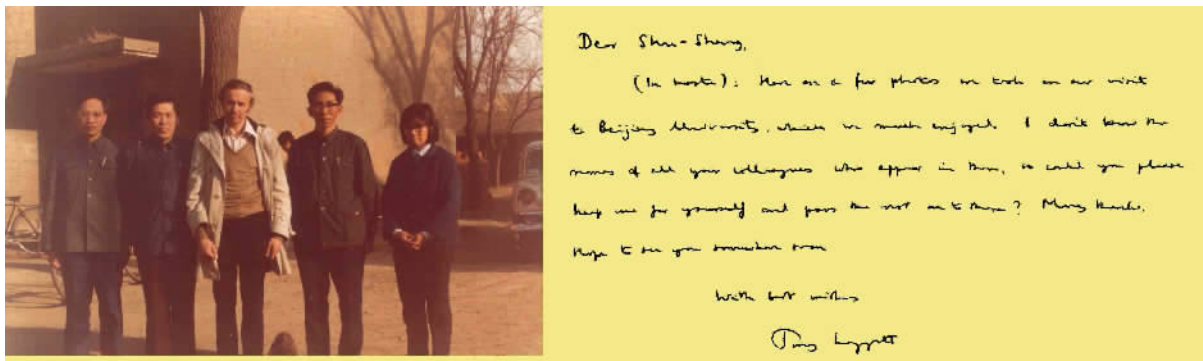 Dear Shu-Sheng,
(In haste): Here are a few photos we took on our visit
to Beijing University, which we much enjoyed. I don't know the
names of all your colleagues who appear in them, so could you please
keep one for yourself and pass the rest on to them? Many thanks.
Hope to see you somewhere soon
With best wishes
Tony Leggett